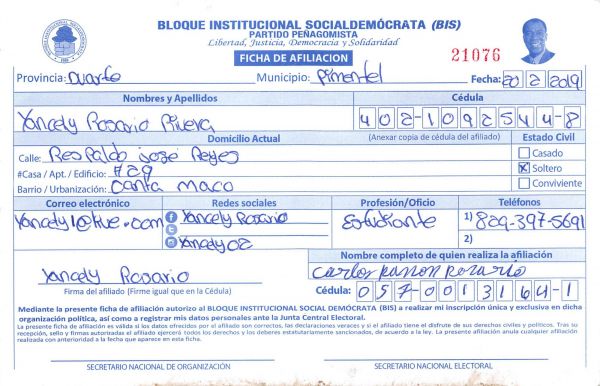 BLOQUE INSTITUCIONAL SOCIALDEMÓCRATA (BIS)
PARTIDO PEÑAGOMISTA
Libertad, Justicia, Democracia y Solidaridad
FICHA DE AFILIACION
21076
Provincia: Duarte Municipio: Pimentel Fecha: 20/2/2019
Nombres y Apellidos Cédula
Yancely Rosario Rivera 402-1092544-8
Domicilio Actual (Anexar copia de cédula del afiliado) Estado Civil
Calle: Respaldo José Reyes Casado
#Casa / Apt. / Edificio: #29 Soltero
Barrio / Urbanización: Canta maco Conviviente
Correo electrónico Redes sociales Profesión/Oficio Teléfonos
Yancely Rosario Estudiante 1) 829-397-5691
Yancely02 2)
Nombre completo de quien realiza la afiliación
Yancely Rosario Carlos Ramon Rosario
Firma del afiliado (Firme igual que en la Cédula) Cédula: 057-0013164-1
Mediante la presente ficha de afiliación autorizo al BLOQUE INSTITUCIONAL SOCIAL DEMÓCRATA (BIS) a realizar mi inscripción única y exclusiva en dicha
organización política, así como a registrar mis datos personales ante la Junta Central Electoral.
La presente ficha de afiliación es válida si los datos ofrecidos por el afiliado son correctos, las declaraciones veraces y si el afiliado tiene el disfrute de sus derechos civiles y políticos. Tras su
recepción, sello y firmas autorizadas el afiliado ejercerá todos los derechos y los deberes estatutariamente sancionados, de acuerdo a la ley. La presente afiliación anula cualquier afiliación
realizada con anterioridad a la fecha que aparece en esta ficha.
SECRETARIO NACIONAL DE ORGANIZACIÓN SECRETARIO NACIONAL ELECTORAL